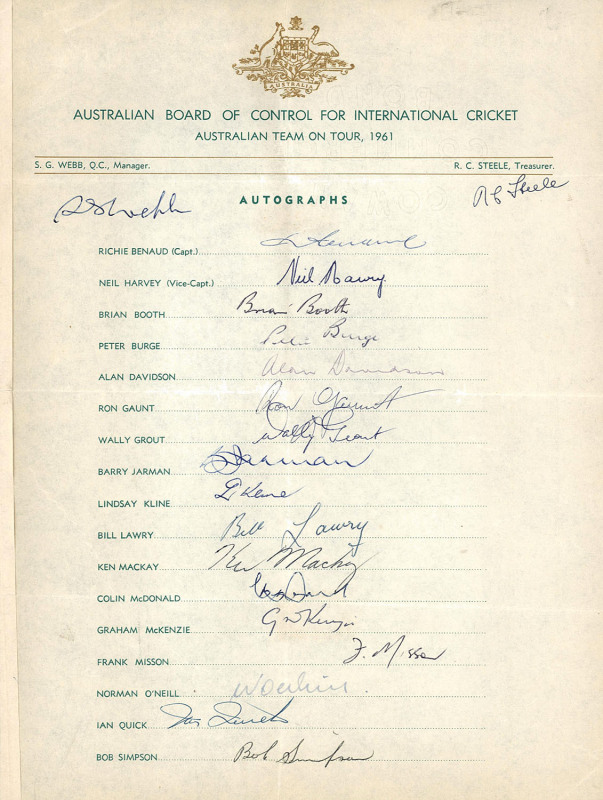 AUSTRALIA
AUSTRALIAN BOARD OF CONTROL FOR INTERNATIONAL CRICKET
AUSTRALIAN TEAM ON TOUR, 1961
S. G. WEBB, Q.C., Manager. R. C. STEELE, Treasurer.
S G Webb AUTOGRAPHS R C Steele
RICHIE BENAUD (Capt.) R Benaud
NEIL HARVEY (Vice-Capt.) Neil Harvey
BRIAN BOOTH Brian Booth
PETER BURGE Peter Burge
ALAN DAVIDSON Alan Davidson
RON GAUNT Ron Gaunt
WALLY GROUT Wally Grout
BARRY JARMAN Jarman
LINDSAY KLINE L Kline
BILL LAWRY Bill Lawry
KEN MACKAY Ken Mackay
COLIN McDONALD
GRAHAM McKENZIE G McKenzie
FRANK MISSON F. Misson
NORMAN O'NEILL N O'Neill
IAN QUICK Ian Quick
BOB SIMPSON Bob Simpson